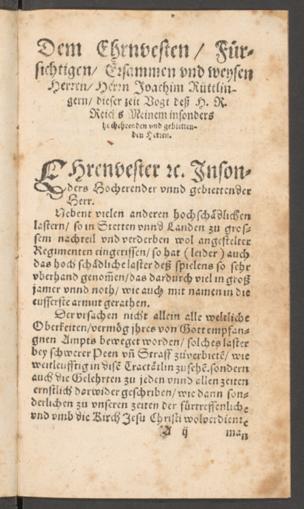 Dem Ehrnvesten / Für-
sichtigen / Ersammen vnd weysen
Herren / Herrn Joachim Rüttlin-
gern / dieser zeit Vogt deß H. R.
Reichs Meinem insonders
hochehrenden vnd gebietten-
den Herren.
EHrenvester ꝛc. Inson-
ders Hocherender vnnd gebiettender
Herr.
Nebent vielen anderen hochschäslichen
lastern / so in Stetten vnnd Landen zu gros-
sem nachteil vnd verderben wol angestelter
Regimenten eingerissen / so hat ( leider ) auch
das hoch schädliche laster deß spielens so sehr
vberhand genom̃en / das dardurch viel in groß
jamer vnnd noth / wie auch mit namen in die
eusserste armut gerathen.
Der vrsachen nicht allein alle weltliche
Oberkeiten / vermög ihres von Gott empfan-
gnen Ampts beweget worden / solches laster
bey schwerer Peen vñ Straff zůverbietē / wie
weitleuffig in disē Tractätlin zusehē. sondern
auch die Gelehrten zu jeden vnnd allen zeiten
ernstlich darwider geschriben / wie dann son-
derlichen zu vnseren zeiten der fürtreffenliche
vnd vmb die Kirch Jesu Christi wolverdiente
A ij man